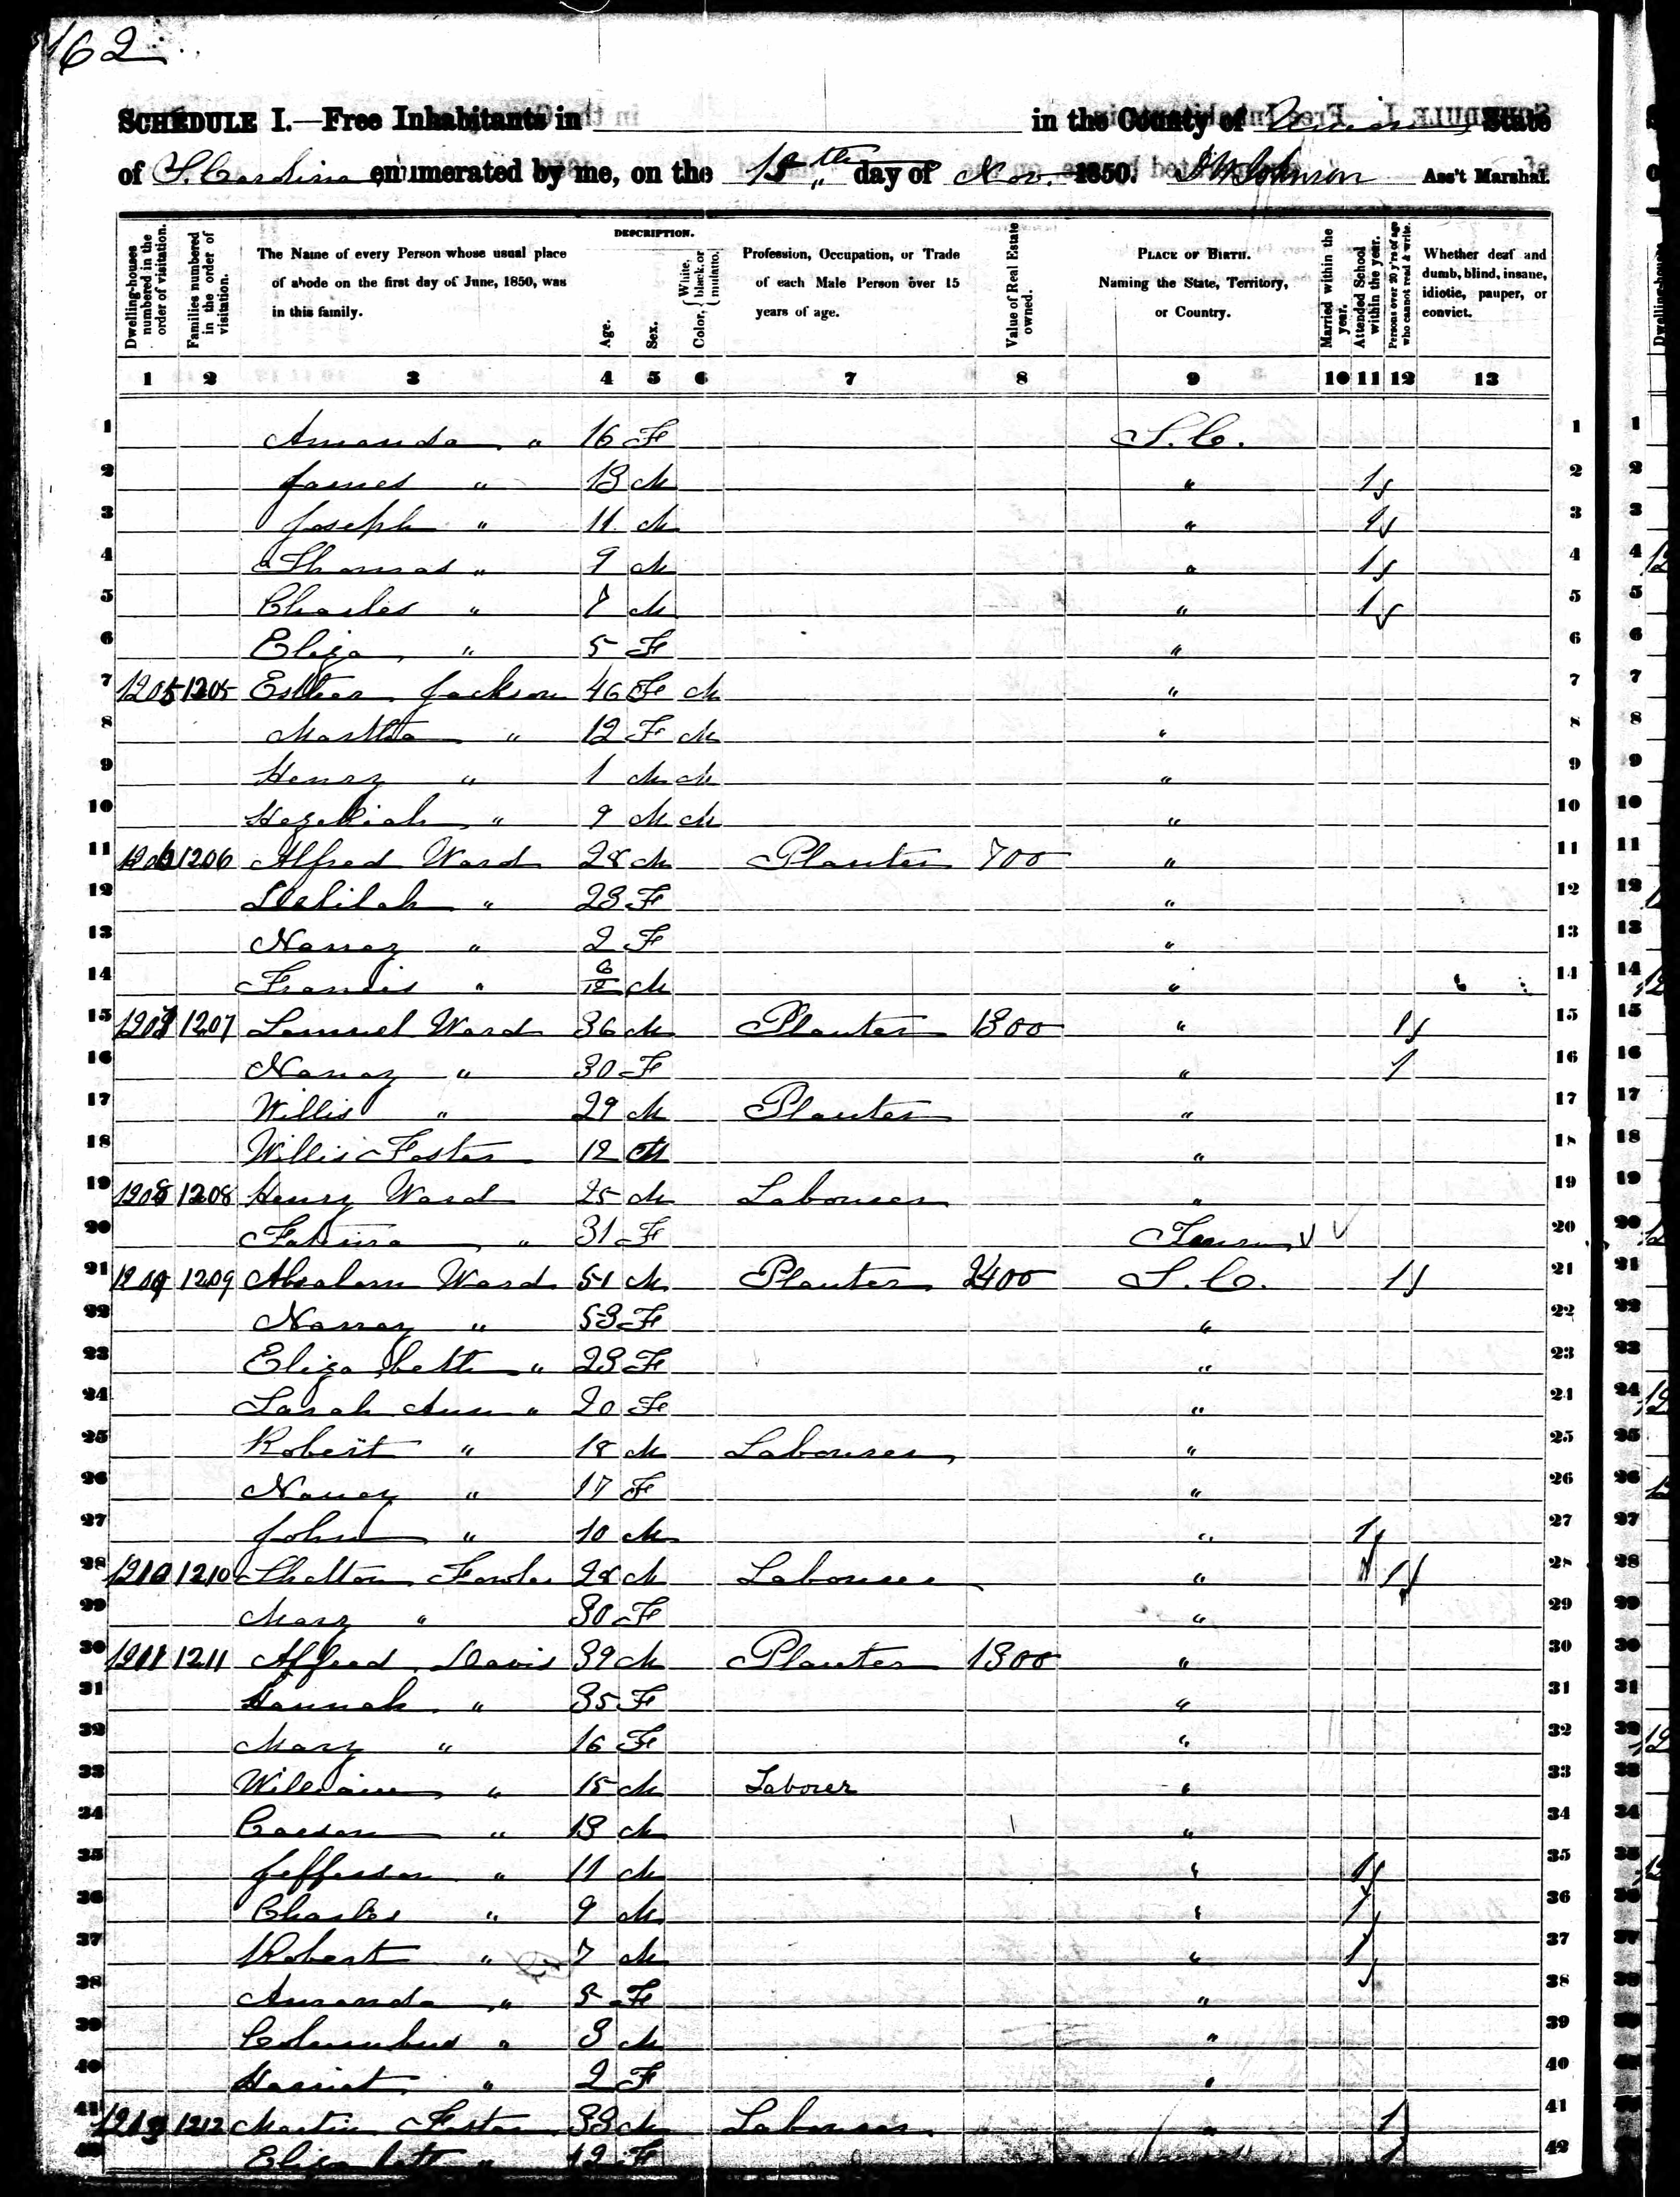 162
SCHEDULE I.—Free Inhabitants in in the County of Union State
of S. Carolina enumerated by me, on the 15th day of Nov. 1850. Johnson Ass't Marshal.
Dwelling-houses numbered in the order of visitation.
Families numbered in the order of visitation.
The Name of every Person whose usual place of abode on the first day of June, 1850, was in this family.
DESCRIPTION.
Age.
Sex.
Color, { White, black, or mulatto.
Profession, Occupation, or Trade of each Male Person over 15 years of age.
Value of Real Estate owned.
PLACE OF BIRTH. Naming the State, Territory, or Country.
Married within the year.
Attended School within the year.
Persons over 20 y'rs of age who cannot read & write.
Whether deaf and dumb, blind, insane, idiotic, pauper, or convict.
1 2 3 4 5 6 7 8 9 10 11 12 13
1 Amanda " 16 F S.C. 1
2 James " 13 M " 1 2
3 Joseph " 11 M " 1 3
4 Thomas " 9 M " 1 4
5 Charles " 7 M " 1 5
6 Eliza " 5 F " 6
7 1205 1205 Esther Jackson 46 F M " 7
8 Martha " 12 F M " 8
9 Henry " 1 M M " 9
10 Hezekiah " 9 M M " 10
11 1206 1206 Alfred Ward 28 M Planter 700 " 11
12 Delilah " 23 F " 12
13 Nancy " 2 F " 13
14 Francis " 6/12 M " 14
15 1207 1207 Lemuel Ward 36 M Planter 1300 " 1 15
16 Nancy " 30 F " 1 16
17 Willis " 29 M Planter " 17
18 Willis Foster 12 M " 18
19 1208 1208 Henry Ward 25 M Labourer " 19
20 " 31 F Tenn 20
21 1209 1209 Absalom Ward 51 M Planter 2400 S.C. 1 21
22 Nancy " 53 F " 22
23 Elizabeth " 23 F " 23
24 Sarah Ann " 20 F " 24
25 Robert " 18 M Labourer " 25
26 Nancy " 17 F " 26
27 John " 10 M " 1 27
28 1210 1210 Shelton Fowler 28 M Labourer " 1 28
29 Mary " 30 F " 29
30 1211 1211 Alfred Davis 39 M Planter 1300 " 30
31 Hannah " 35 F " 31
32 Mary " 16 F " 32
33 William " 15 M Laborer " 33
34 " 13 M " 34
35 Jefferson " 11 M " 1 35
36 Charles " 9 M " 1 36
37 Robert " 7 M " 1 37
38 Amanda " 5 F " 38
39 Columbus " 3 M " 39
40 Harriet " 2 F " 40
41 1212 1212 Martin Foster 33 M Labourer " 1 41
42 Elizabeth " F 1 42